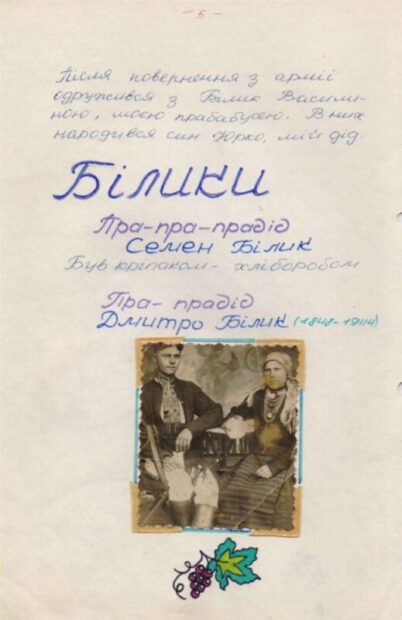 - 5 -
Після повернення з армії
одружився з Білик Васили-
ною, моєю прабабусею. В них
народився син Юрко, мій дід.
Білики
Пра-пра-прадід
Семен Білик
Був кріпаком - хліборобом
Пра- прадід
Дмитро Білик (1848-1944)